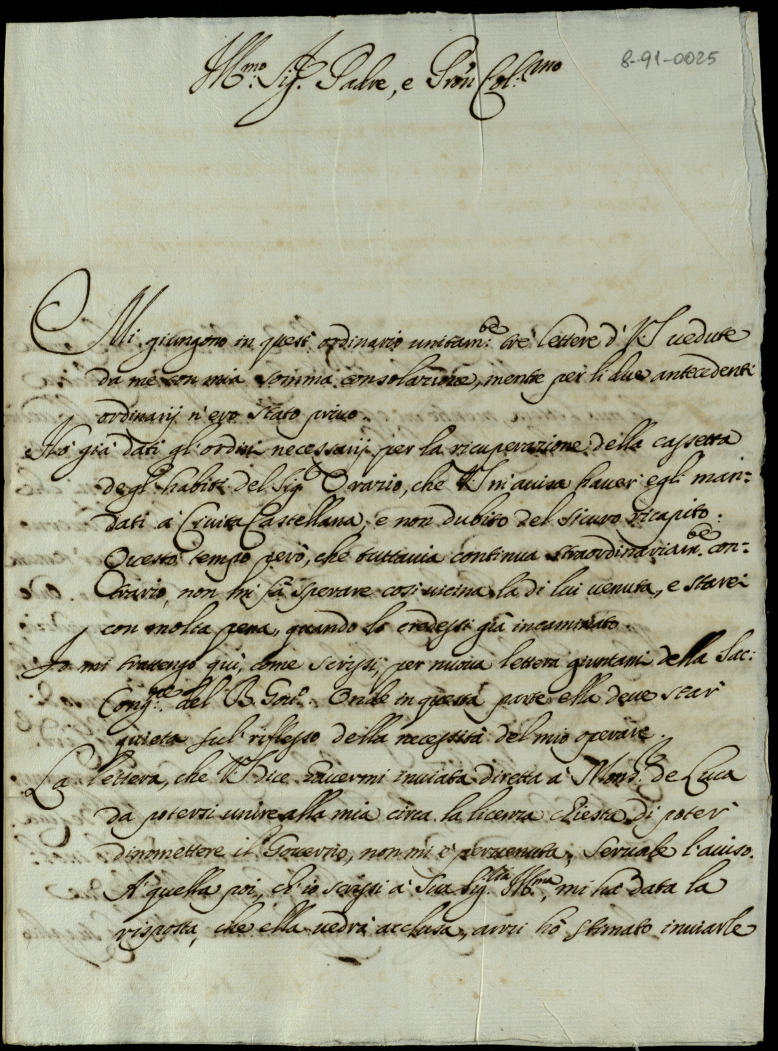 8-91-0025
Ill.mo Sig.r Padre, e Pron Col.mo
Mi giungono in quest' ordinario unitam.te tre lettere d' VS vedute
da me con mia somma consolazione, mentre per li due antecedenti
ordinarij n' ero stato privo.
Ho già dati gl' ordini necessarij per la ricuperazione della cassetta
degl' habiti del Sig.r Orazio, che VS m' avisa haver' egli man=
dati à Civita Castellana, e non dubito del sicuro ricapito.
Questo tempo però, che tuttavia continua straordinariam.te con=
trario, non mi fà sperare così vicina la di lui venuta, e starei
con molta pena, quando lo credessi già incaminato.
Io mi trattengo quì, come scrissi, per nuova lettera giuntami della Sac:
Cong.ne del B. Gov.o. Onde in questa parte ella deve star'
quieta sul' riflesso della necessità del mio operare.
La lettera, che VS dice havermi inviata diretta à Mons.r de Luca
da potersi unire alla mia circa la licenza chiesta di poter'
dimettere il Governo, non mi è pervenuta, servale l' aviso.
A' quella poi, ch' io scrissi à Sua Sig.ria Ill.ma, mi ha data la
risposta, che ella vedrà acclusa, avvi hò stimato inviarle